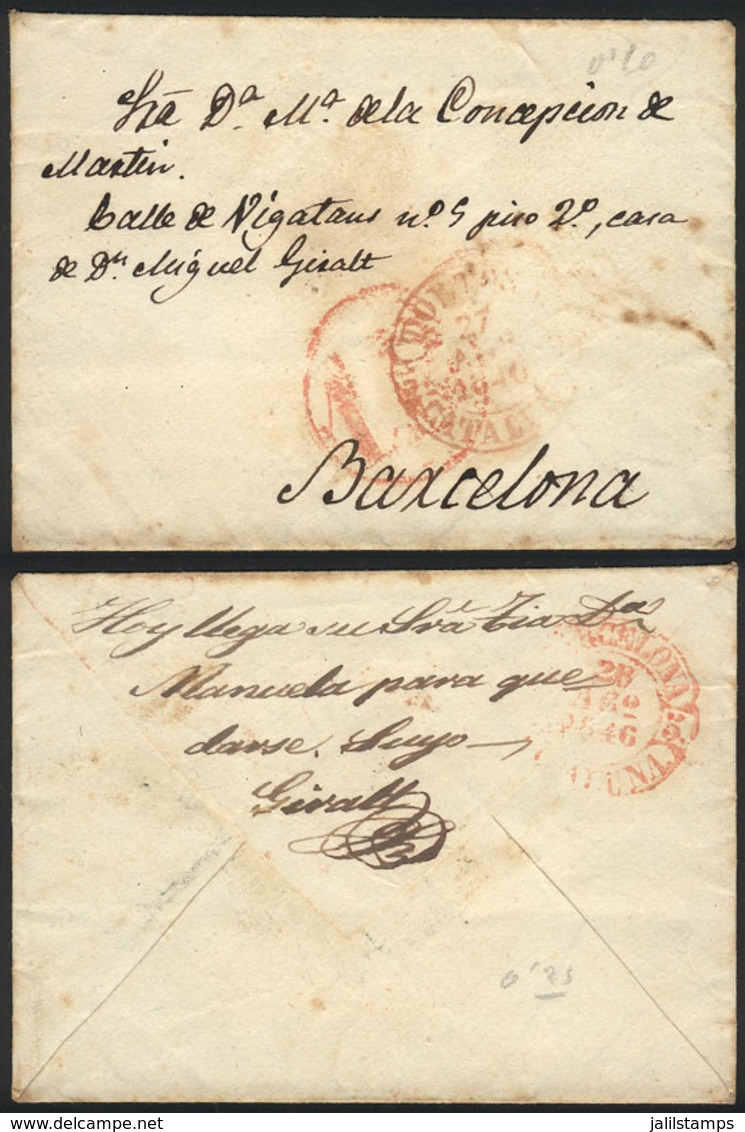 0'10
Srã Dª Mª de la Concepcion de
Martin.
Calle de Vigatans nº 5 piso 2º, casa
de Dn Miguel Giralt
27
1846
CATAL
Barcelona
Hoy llega su Srã Tia Dª
Manuela para que
darse. Suyo
Giralt
BARCELONA
28
AGº
1846
0'25
jalilstamps